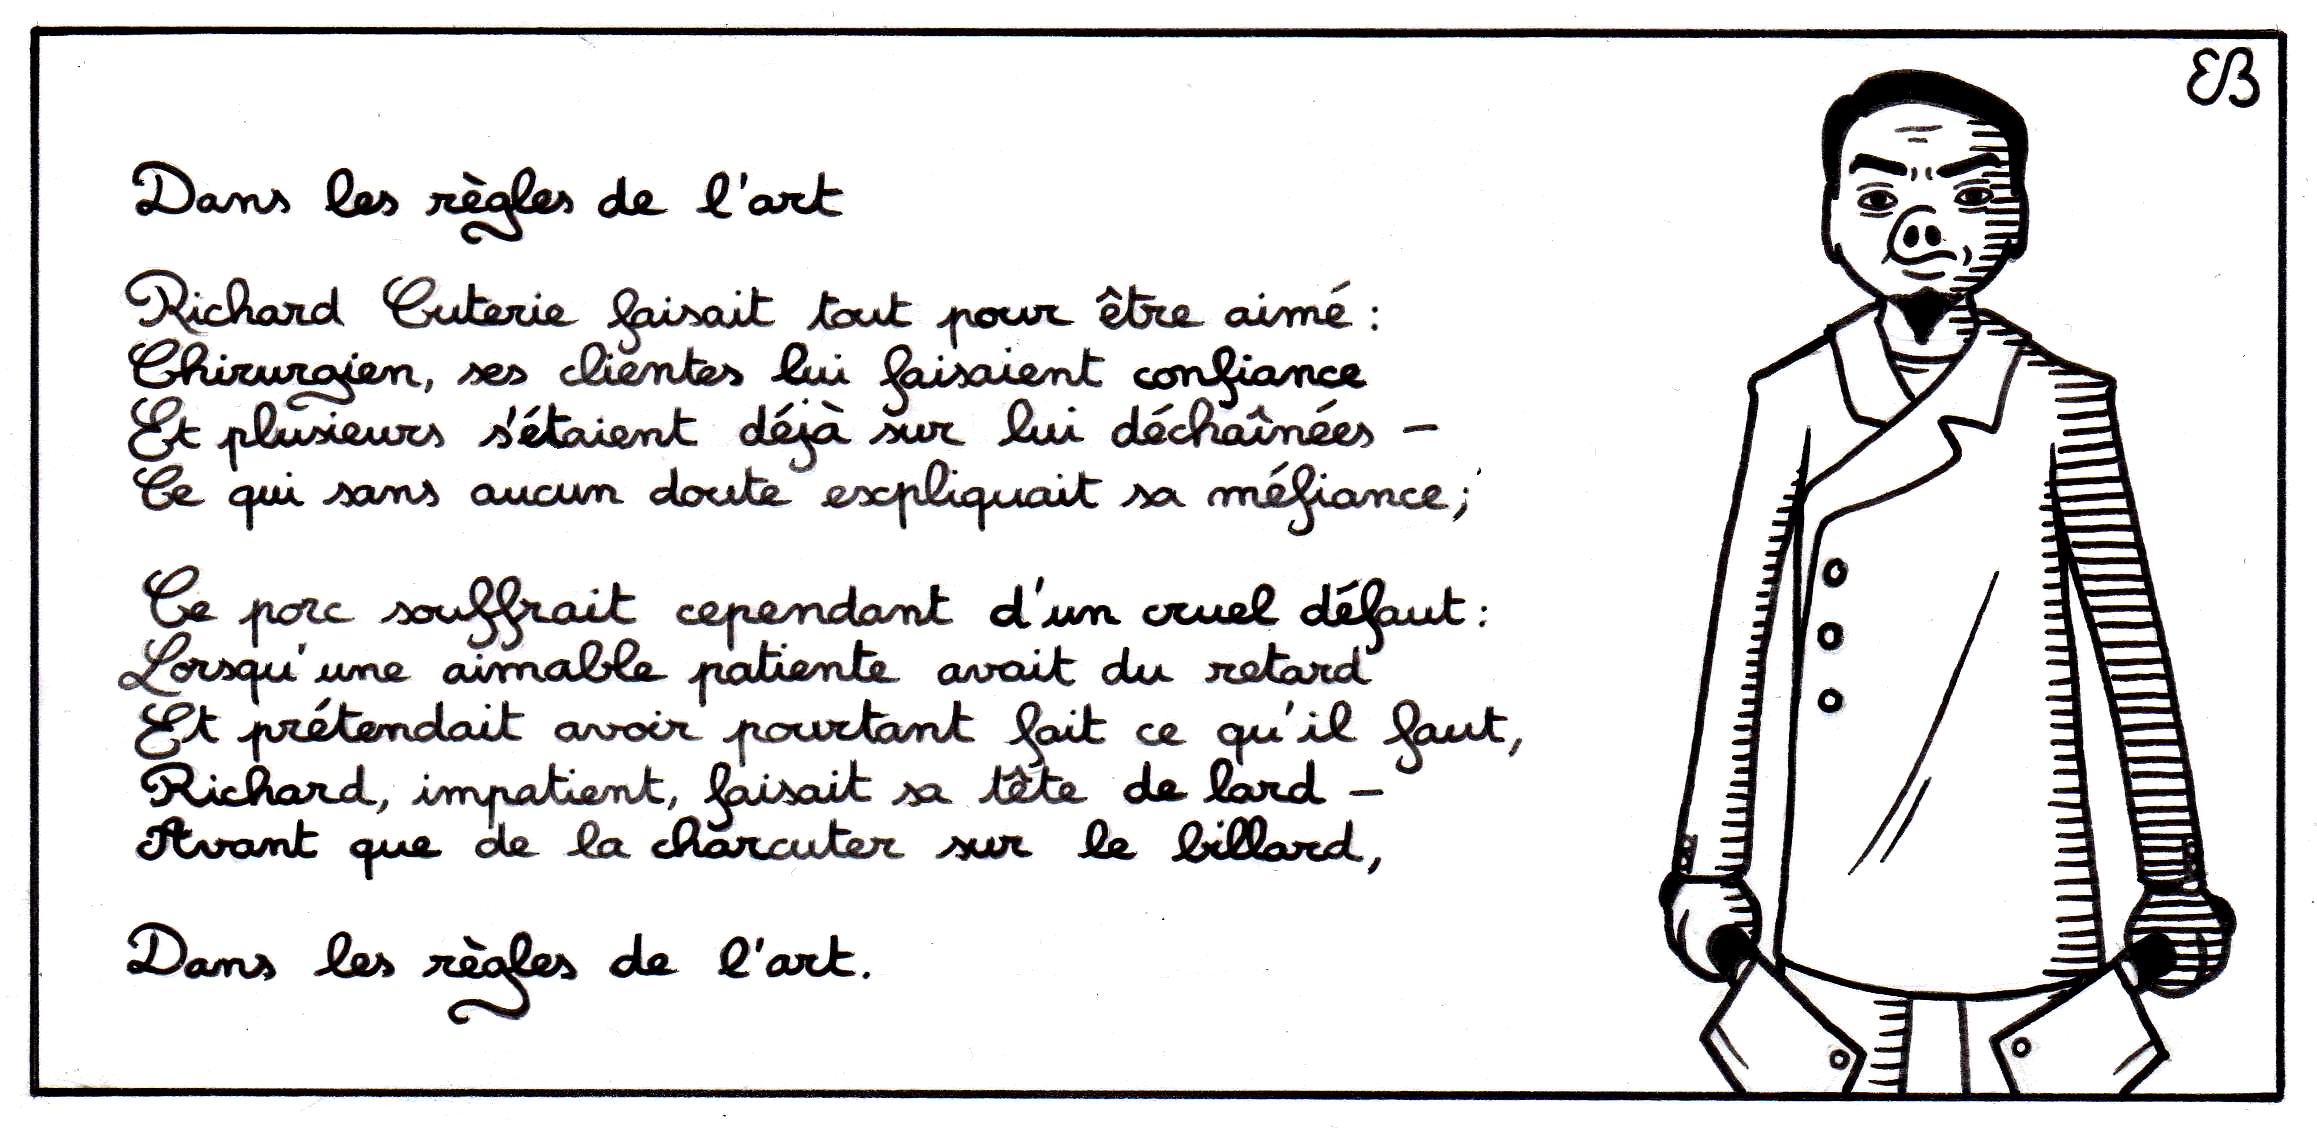 EB
Dans les règles de l'art
Richard Cuterie faisait tout pour être aimé :
Chirurgien, ses clientes lui faisaient confiance
Et plusieurs s'étaient déjà sur lui déchaînées –
Ce qui sans aucun doute expliquait sa méfiance ;
Ce porc souffrait cependant d'un cruel défaut :
Lorsqu'une aimable patiente avait du retard
Et prétendait avoir pourtant fait ce qu'il faut,
Richard, impatient, faisait sa tête de lard –
Avant que de la charcuter sur le billard,
Dans les règles de l'art.